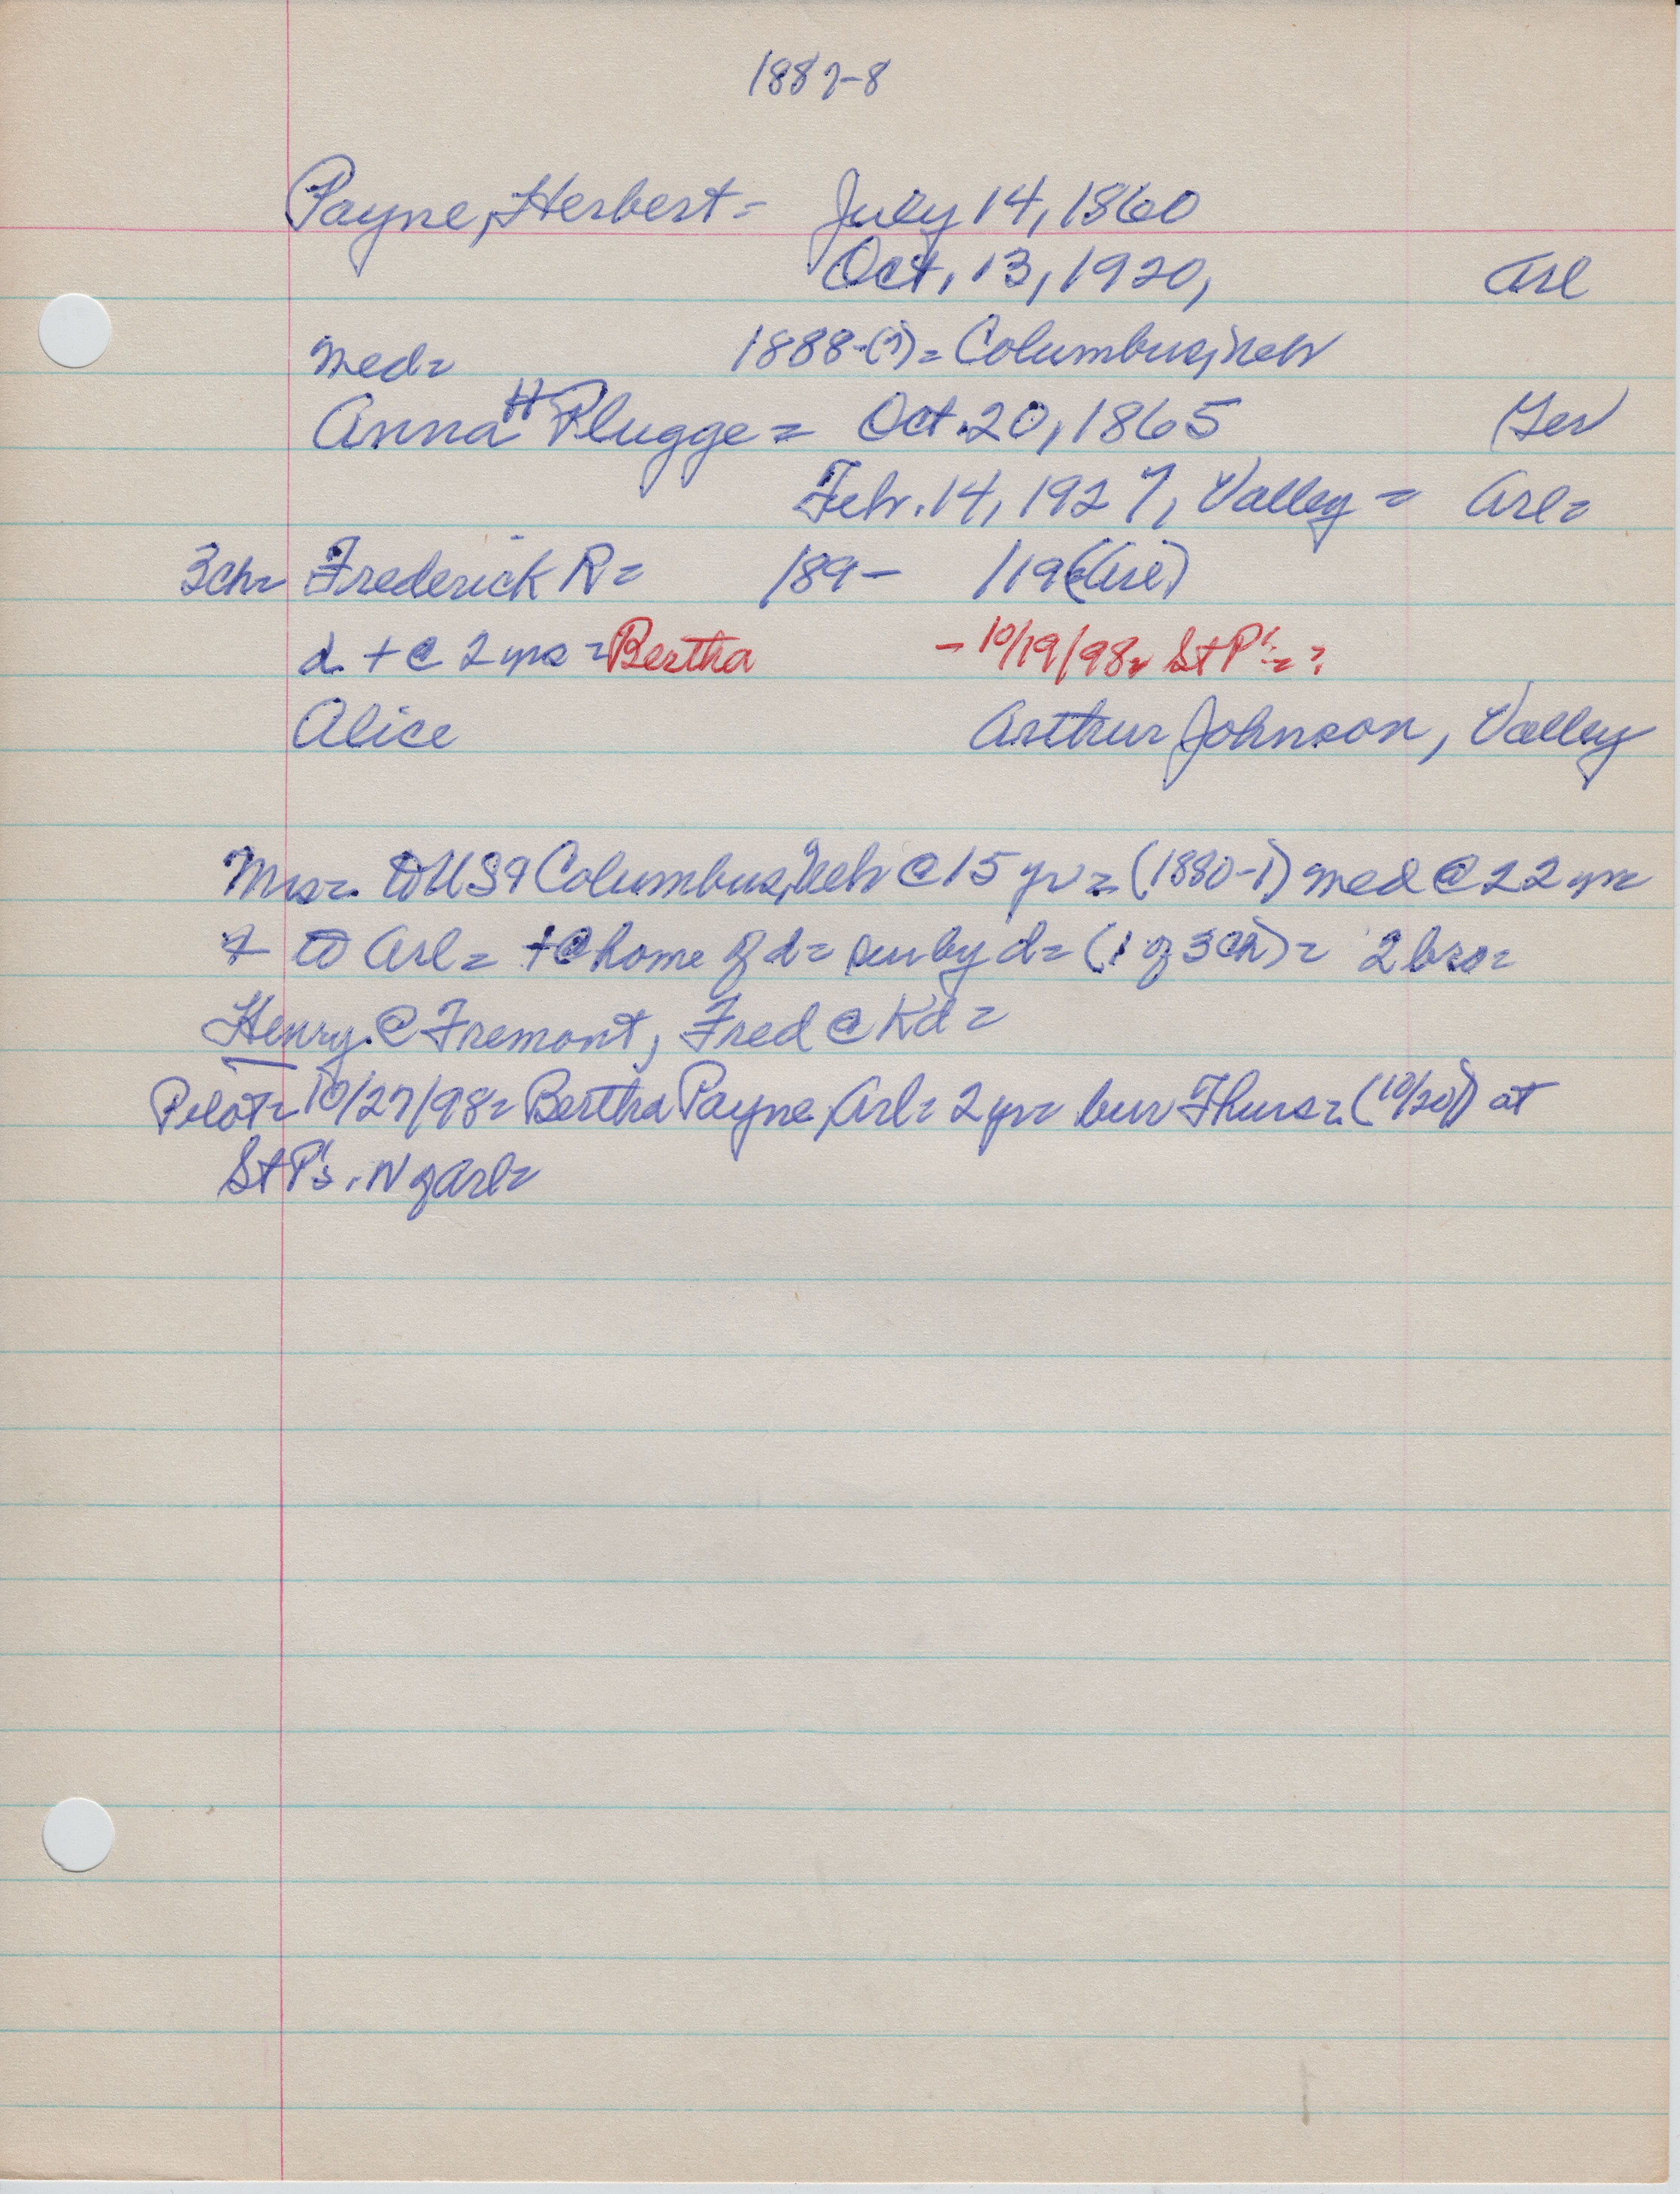 1887-8
Payne, Herbert = July 14, 1860
Oct. 13, 1920, Arl
Med = 1888-(?) = Columbus, Neb
Anna H Plugge = Oct. 20, 1865 Ger
Feb. 14, 1927, Valley = Arl =
3ch = Frederick R = 189- / 19 (Arl)
d. + @ 2 yrs = Bertha - 10/19/98 = St P's = ?
Alice Arthur Johnson, Valley
Mrs = to USA Columbus, Neb @ 15 yr = (1880-1) med @ 22 yr =
& to Arl = + @ home of d = sur by d = (1 of 3 ch) = 2 bro =
Henry @ Fremont, Fred @ Kd =
Pilot = 10/27/98 = Bertha Payne, Arl = 2 yr = bur Thurs = (10/20) at
St P's, N of Arl =